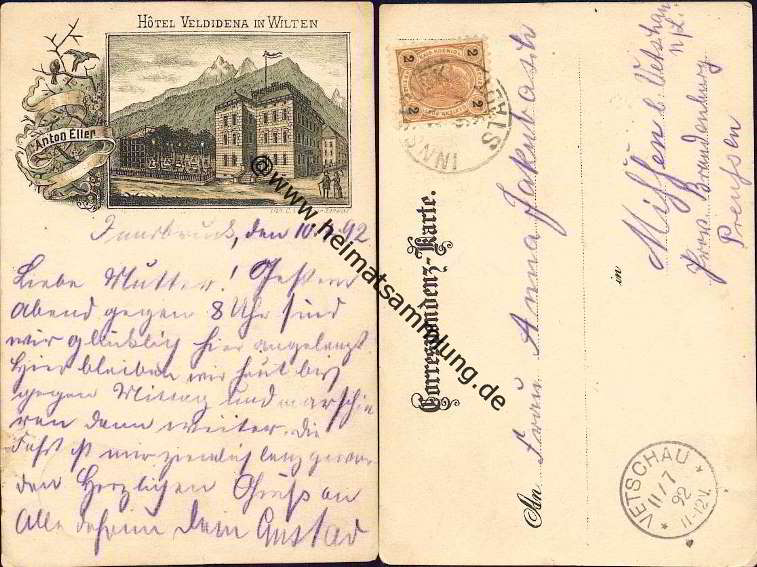 HÔTEL VELDIDENA IN WILTEN
Anton Eller
Innsbruck, den 10. 7. 92
Liebe Mutter! Gestern
Abend gegen 8 Uhr sind
wir glücklich hier angelangt
Hier bleiben wir heut bis
gegen Mittag und marschie
ren dann weiter. die
ist mir ziemlich lang gewor
den Herzlichen Gruß an
Alle daheim Dein Gustav
@www.heimatsammlung.de
2 2
2 2
INNS
Correspondenz-Karte.
An Frau Anna Jakubasch
in Missen b. Vetschau
N/L.
Prov. Brandenburg
Preussen
VETSCHAU
11/7
92
11-12V.